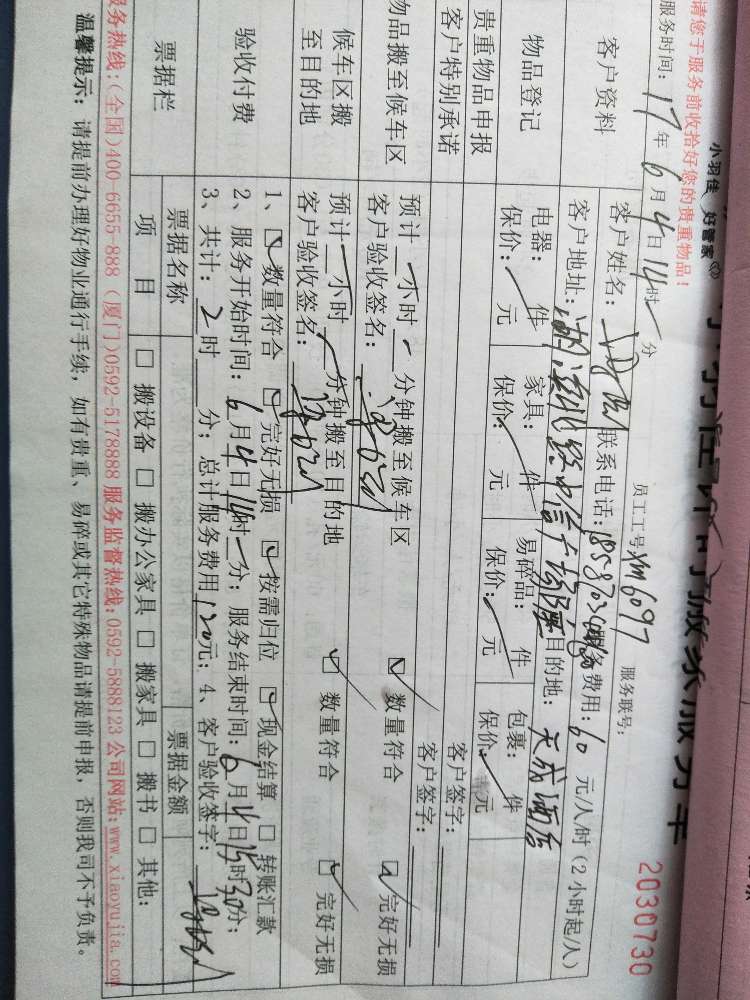 小羽佳 好管家
2030730
请您于服务前收拾好您的贵重物品!
员工工号 XM6097 服务联号:
服务时间: 17年6月4日14时 分
客户资料
客户姓名: 联系电话: 服务费用: 60 元/人/时(2小时起/人)
客户地址: 目的地: 天成酒店
物品登记
电器: 件 家具: 件 易碎品: 件 包裹: 件
保价: 元 保价: 元 保价: 元 保价: 元
贵重物品申报 客户签字:
客户特别承诺 客户签字:
物品搬至候车区
预计 小时 分钟搬至候车区 ☑ 数量符合 ☑ 完好无损
客户验收签名:
候车区搬至目的地
预计 小时 分钟搬至目的地 ☑ 数量符合 ☑ 完好无损
客户验收签名:
验收付费
1、☑ 数量符合 ☑ 完好无损 ☑ 按需归位 ☑ 现金结算 □ 转账汇款
2、服务开始时间: 6月4日14时 分; 服务结束时间: 6月4日15时30分;
3、共计: 2时 分; 总计服务费用120元; 4、客户验收签字:
票据栏 票据名称 票据金额
项 目 □ 搬设备 □ 搬办公家具 □ 搬家具 □ 搬书 □ 其他:
服务热线:(全国)400-6655-888 (厦门)0592-5178888 服务监督热线:0592-5888123 公司网站:www.xiaoyujia.com
温馨提示: 请提前办理好物业通行手续, 如有贵重、易碎或其它特殊物品请提前申报, 否则我司不予负责。